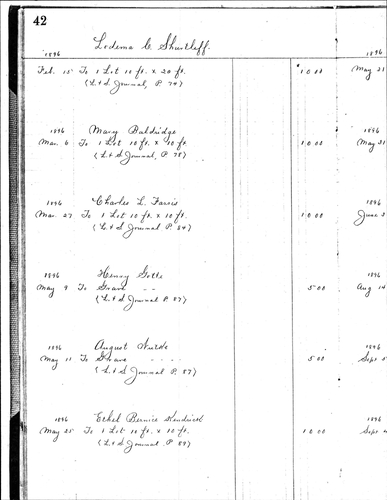 42
Lodema C. Shurtleff.
1896 1896
Feb. 15 To 1 Lot 10 ft. x 20 ft. 10 00 May 21
(L & S Journal, P. 74)
1896 Mary Baldridge 1896
Mar. 6 To 1 Lot 10 ft. x 10 ft. 10 00 May 31
(L & S Journal, P. 78)
1896 Charles L. Farris 1896
Mar. 27 To 1 Lot 10 ft. x 10 ft. 10 00 June 2
(L & S Journal P. 84)
1896 Henry Gotte 1896
May 9 To Grave - - 5 00 Aug 14
(L & S Journal P. 87)
1896 August 1896
May 11 To Grave - - - - 5 00 Sept 5
(L & S Journal P. 87)
1896 Ethel Bernice Kendrick 1896
May 25 To 1 Lot 10 ft. x 10 ft. 10 00 Sept 4
(L & S Journal P. 89)